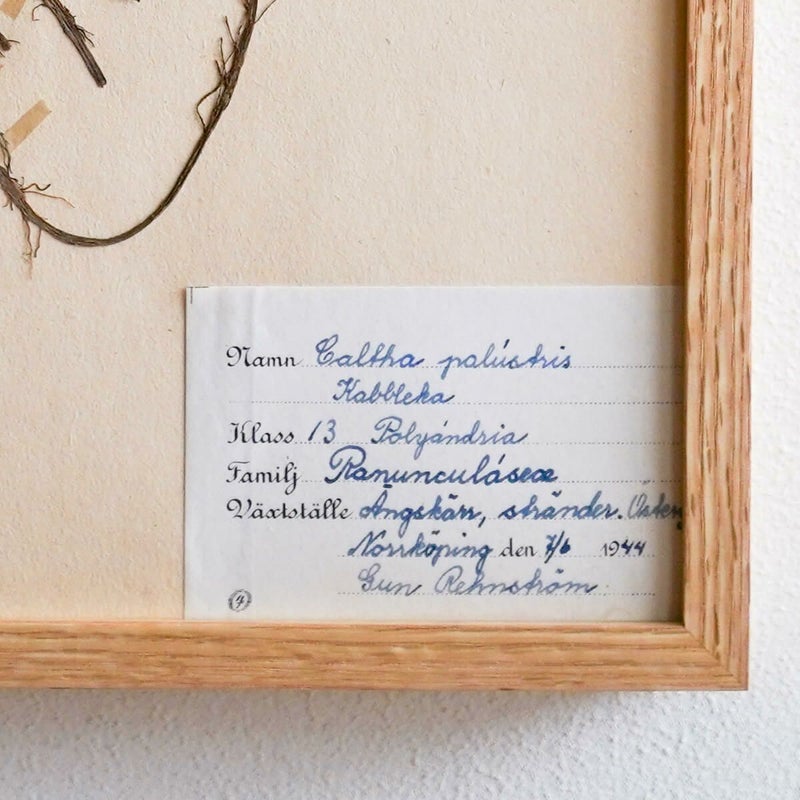 Namn Caltha palústris
Kabbleka
Klass 13 Polyándria
Familj Ranunculáseæ
Växtställe Ängskärr, stränder.
Norrköping den 7/6 1944
Gun Rehnström.
4